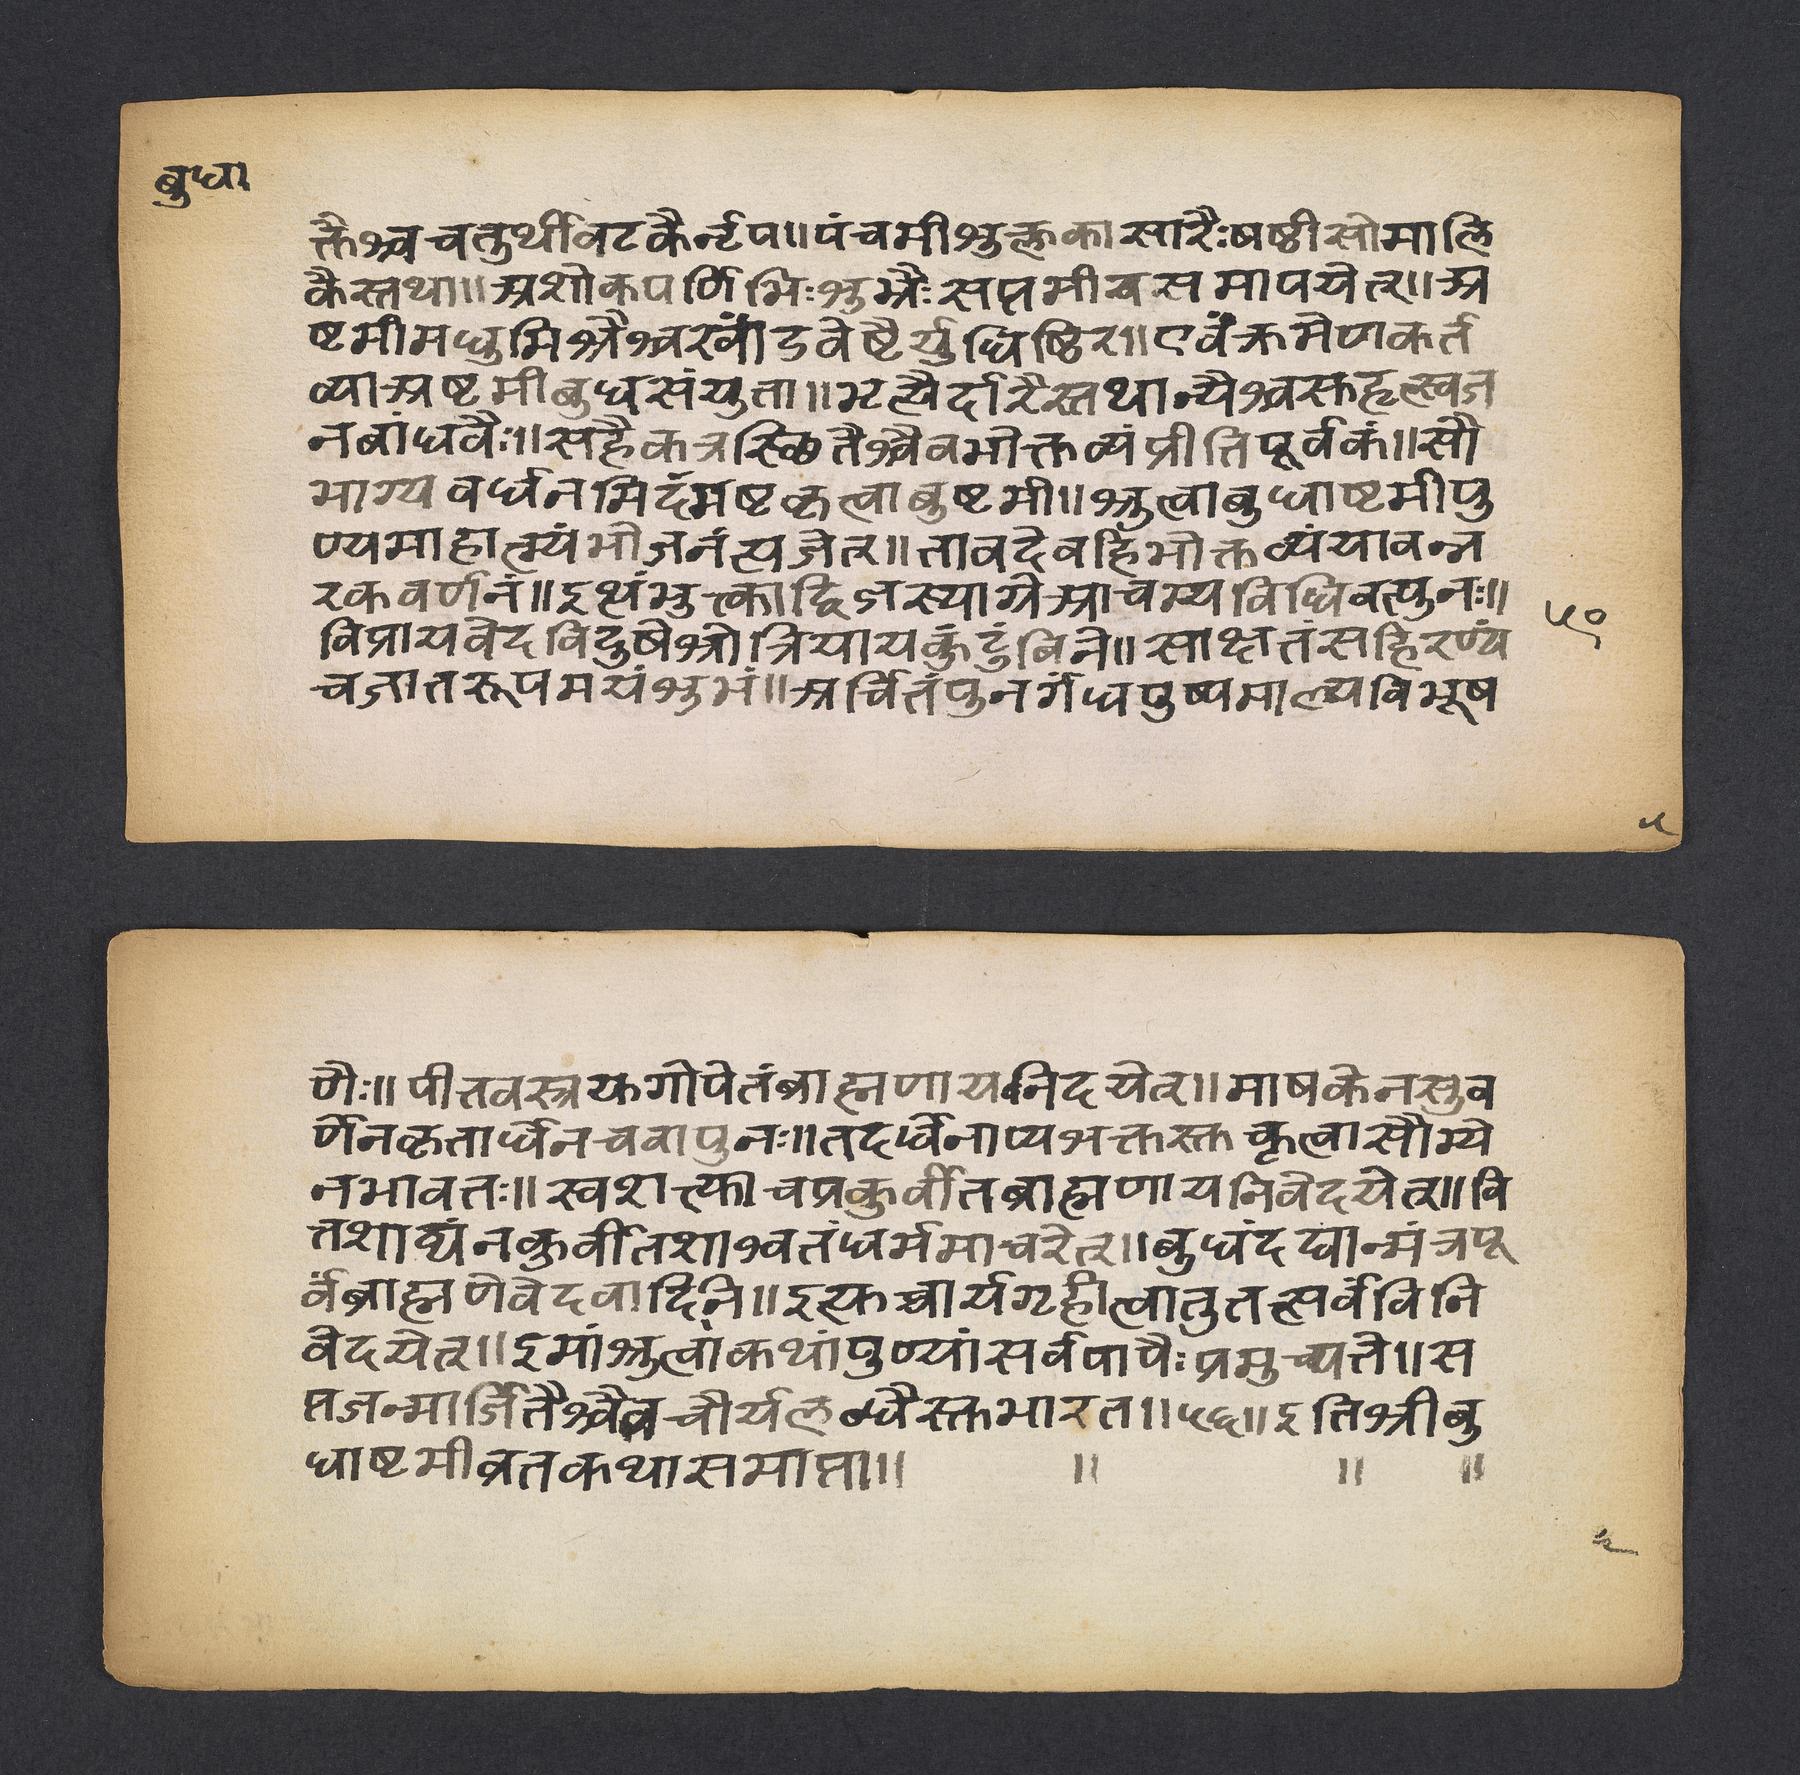 बुधा
क्तैश्चचतुर्थीवटकैर्नृप॥पंचमीशुक्लकासारैःषष्ठीसोमालि
कैस्तथा॥अशोकपर्णिभिःशुभ्रैःसप्तमीचसमापयेत्॥अ
ष्टमीमधुमिश्रैश्चखांडवेष्टैर्युधिष्ठिर॥एवंक्रमेणकर्त
व्याअष्टमीबुधसंयुता॥भृत्यैर्दारैस्तथान्यैश्चसुहृत्स्वज
नबांधवैः॥सहैकत्रस्छितैश्चैवभोक्तव्यंप्रीतिपूर्वकं॥सौ
भाग्यवर्धनमिदंमष्टकृत्वाबुष्टमी॥श्रुत्वाबुधाष्टमीपु
ण्यमाहात्म्यंभोजनंत्यजेत्॥तावदेवहिंभोक्तव्यंयावन्न
रकवर्णनं॥इथंभुक्त्काद्विजस्याग्रेआचम्यविधिवत्पुनः॥
विप्रायवेदविदुषेश्रोत्रियायकुंटुंबिने॥साक्षतंसहिरण्यं
चजातरूपमयंशुभं॥अर्चितंपुनर्गंधपुष्पमाल्यविभूष
५०
५
णैः॥पीतवस्त्रयुगोपेतंब्राह्मणायनिदयेत्॥माषकेनसुव
र्णेनकृतार्धेनचवापुनः॥तदर्धेनाप्यशक्तस्तुकृत्वासौम्ये
नभावतः॥स्वशक्त्याचप्रकुर्वीतब्राह्मणायनिवेदयेत्॥वि
त्तशाठ्यंनकुर्वीतशाश्वतंधर्ममाचरेत्॥बुधंदद्यान्मंत्रपू
र्वंब्राह्मणेवेदवादिनि॥इत्युच्चार्यगृहीत्वातुतत्सर्वंविनि
वेदयेत्॥इमांश्रुत्वांकथांपुण्यांसर्वपापैःप्रमुच्यते॥स
प्तजन्मार्जितैश्चैवचौर्यलब्धैस्तुभारत॥५६॥इतिश्रीबु
धाष्टमीव्रतकथासमाप्ता॥ ॥ ॥ ॥